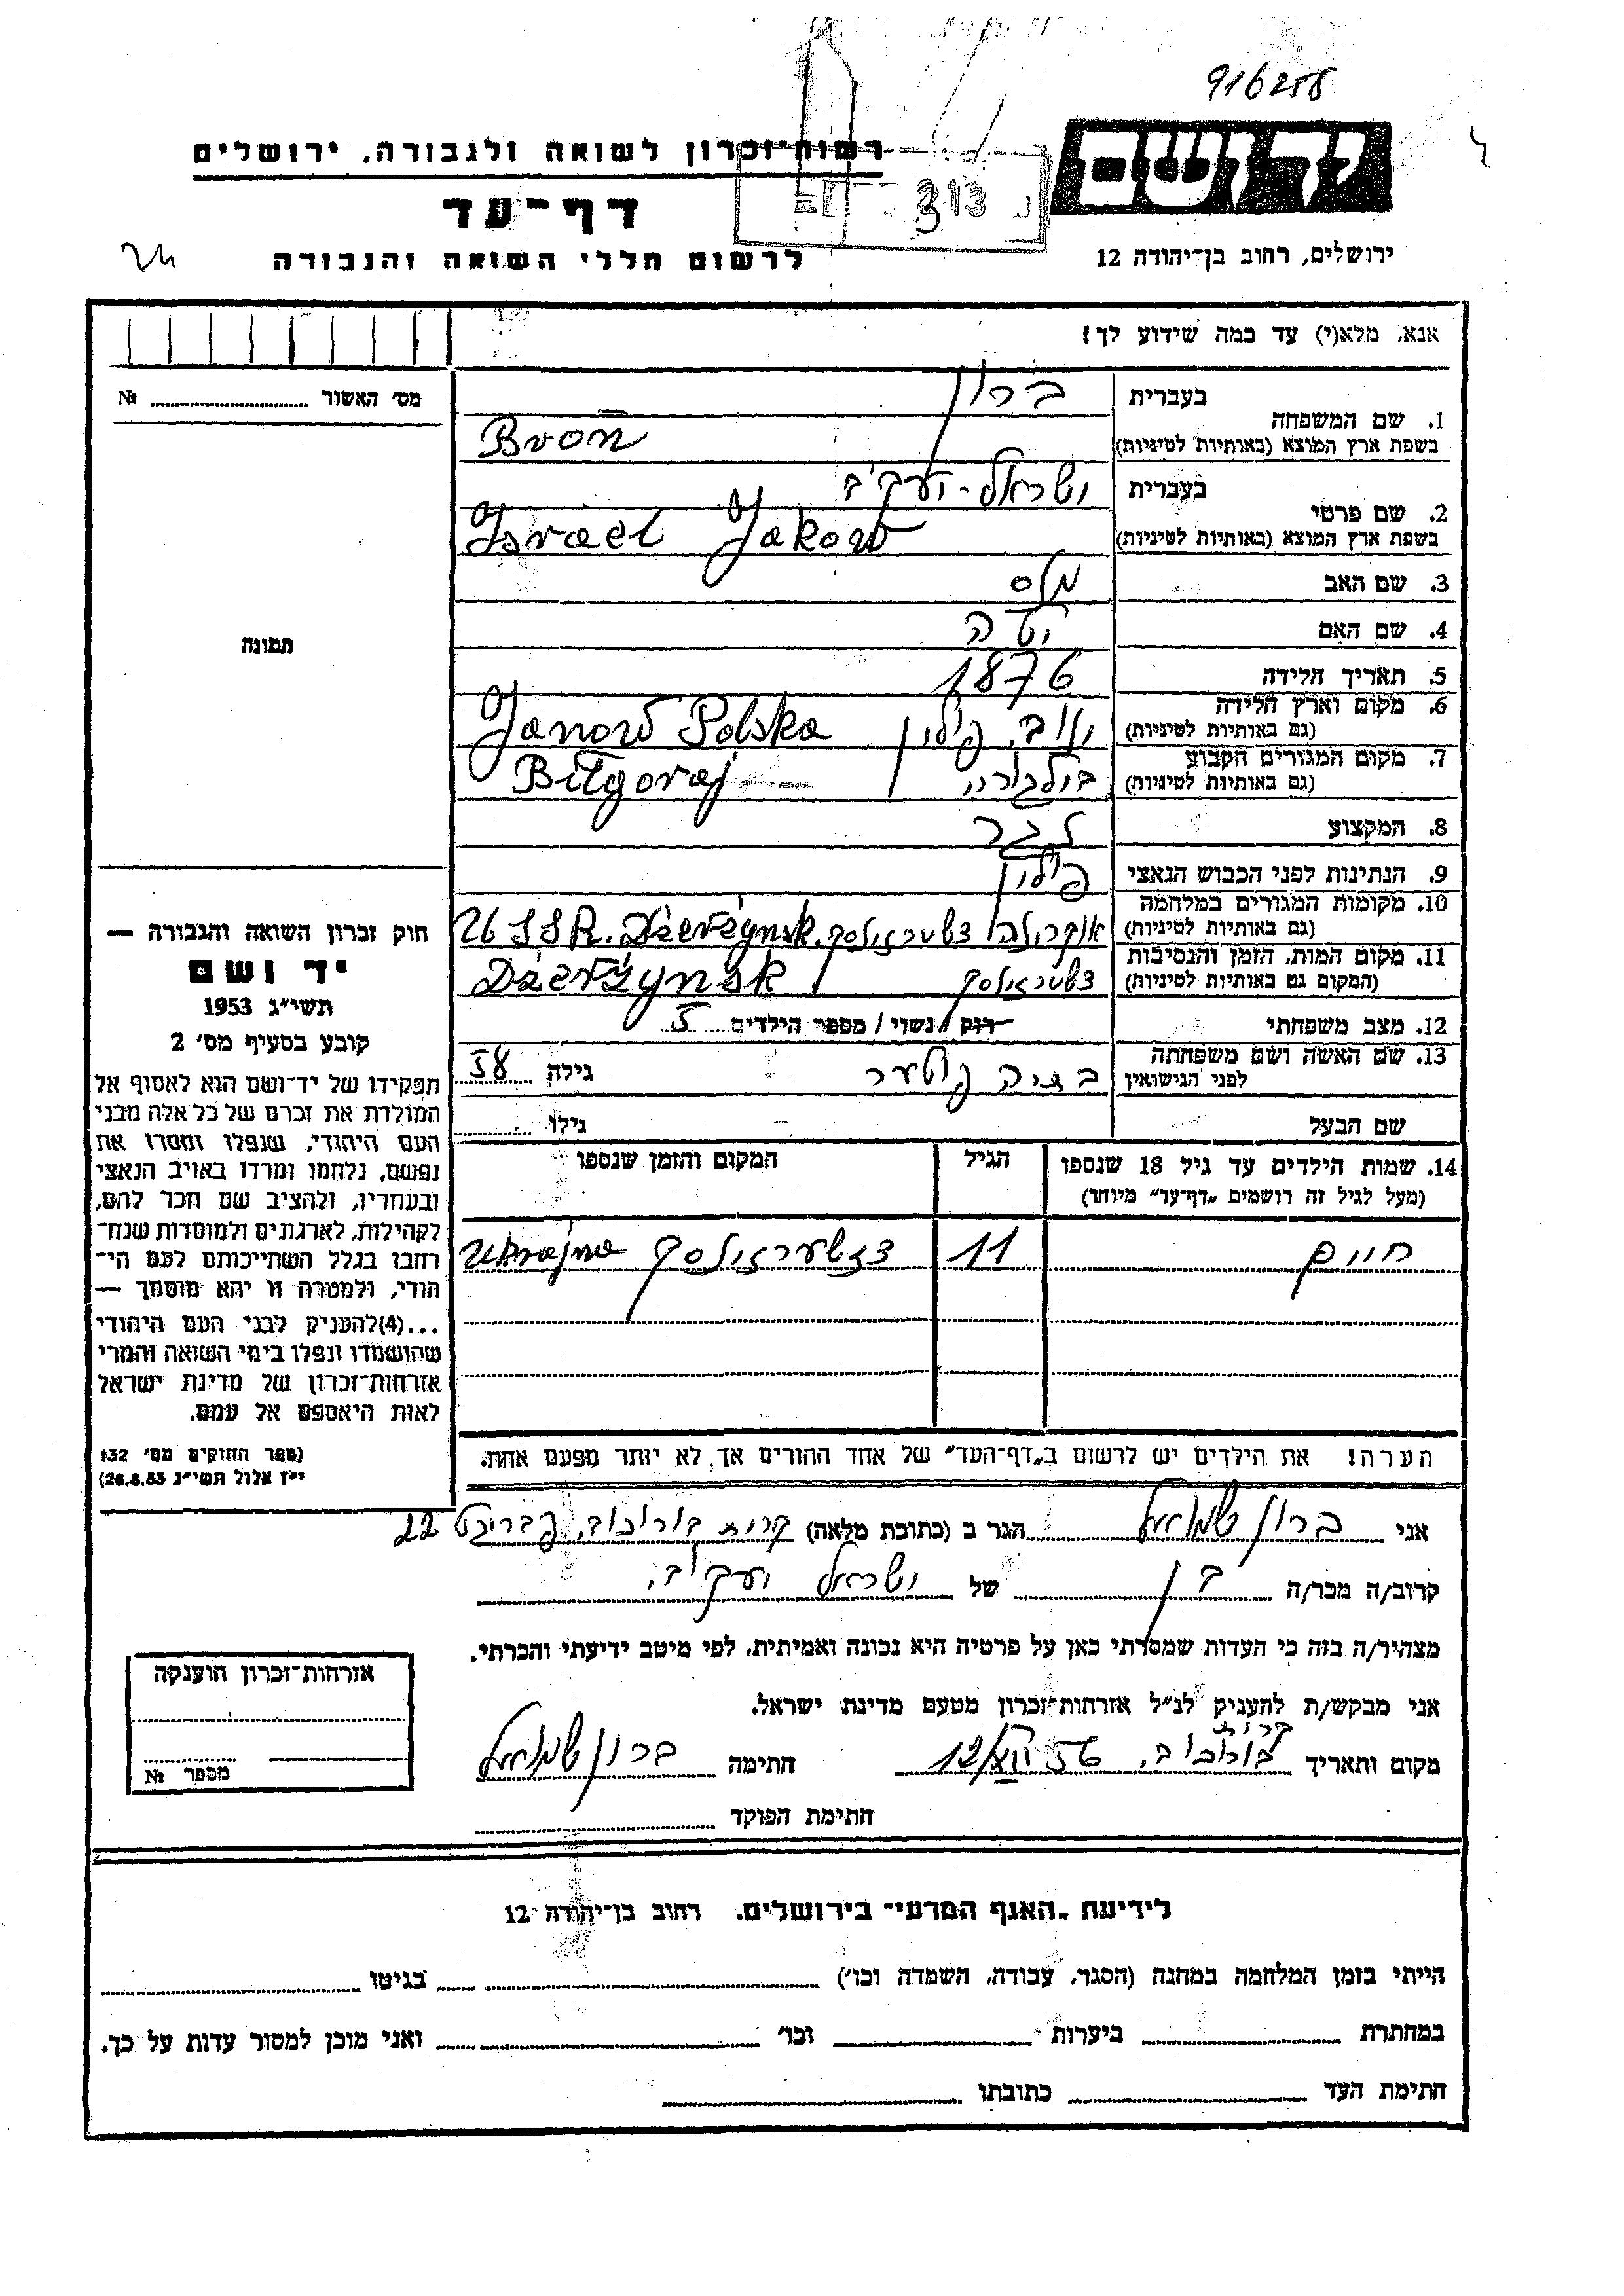 916258
רשות־זכרון לשואה ולגבורה, ירושלים
יד ושם
313
דף־עד
לרשום חללי השואה והגבורה
ירושלים, רחוב בן־יהודה 12
אנא, מלא(י) עד כמה שידוע לך!
מס' האשור № ..........
1. שם המשפחה בעברית ברון
בשפת ארץ המוצא (באותיות לטיניות) Bron
2. שם פרטי בעברית ישראל-יעקב
בשפת ארץ המוצא (באותיות לטיניות) Israel Jakow
3. שם האב
4. שם האם יטה
5. תאריך הלידה 1876
6. מקום וארץ הלידה (גם באותיות לטיניות) ינוב, פולין Janow Polska
7. מקום המגורים הקבוע (גם באותיות לטיניות) בילגוריי Biłgoraj
8. המקצוע
9. הנתינות לפני הכבוש הנאצי פולין
10. מקומות המגורים במלחמה (גם באותיות לטיניות) אוקרילה, Dzerżynsk
11. מקום המות, הזמן והנסיבות (המקום גם באותיות לטיניות) Dżerżynsk
12. מצב משפחתי רוק / נשוי / מספר הילדים 5
13. שם האשה ושם משפחתה לפני הנישואין גילה 58
שם הבעל גילו
תמונה
14. שמות הילדים עד גיל 18 שנספו הגיל המקום והזמן שנספו
(מעל לגיל זה רושמים „דף־עד" מיוחד)
חיים 11 Ukrajna
הערה! את הילדים יש לרשום ב„דף־העד" של אחד ההורים אך לא יותר מפעם אחת.
חוק זכרון השואה והגבורה —
יד ושם
תשי"ג 1953
קובע בסעיף מס' 2
תפקידו של יד־ושם הוא לאסוף אל
המולדת את זכרם של כל אלה מבני
העם היהודי, שנפלו ומסרו את
נפשם, נלחמו ומרדו באויב הנאצי
ובעוזריו, ולהציב שם וזכר להם,
לקהילות, לארגונים ולמוסדות שנח־
רחבו בגלל השתייכותם לעם הי־
הודי, ולמטרה זו יהא מוסמך —
...(4)להעניק לבני העם היהודי
שהושמדו ונפלו בימי השואה והמרי
אזרחות־זכרון של מדינת ישראל
לאות היאספם אל עמם.
(ספר החוקים מס' 132
י"ז אלול תשי"ג 28.8.53)
אני ברון שמואל הגר ב (כתובת מלאה) קרית בורוכוב, 22
קרוב/ה מכר/ה בן של ישראל יעקב,
מצהיר/ה בזה כי העדות שמסרתי כאן על פרטיה היא נכונה ואמיתית, לפי מיטב ידיעתי והכרתי.
אני מבקש/ת להעניק לנ"ל אזרחות־זכרון מטעם מדינת ישראל.
מקום ותאריך קרית בורוכוב, חתימה ברון שמואל
חתימת הפוקד
אזרחות־זכרון הוענקה
מספר №
לידיעת „האגף המדעי" בירושלים, רחוב בן־יהודה 12
הייתי בזמן המלחמה במחנה (הסגר, עבודה, השמדה וכו') בגיטו
במחתרת ביערות וכו' ואני מוכן למסור עדות על כך.
חתימת העד כתובתו